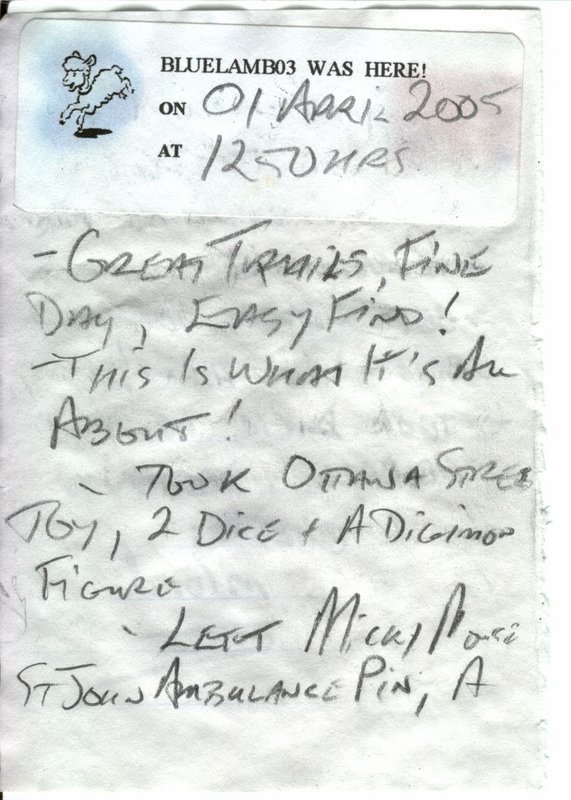 BLUELAMB03 WAS HERE!
ON 01 APRIL 2005
AT 1250HRS
- GREAT TRAILS, FINE
DAY, EASY FIND!
- THIS IS WHAT IT'S ALL
ABOUT!
- TOOK OTTAWA STREE
TOY, 2 DICE + A DIGIMON
FIGURE
- LEFT MICKY MOUSE
ST JOHN AMBULANCE PIN, A